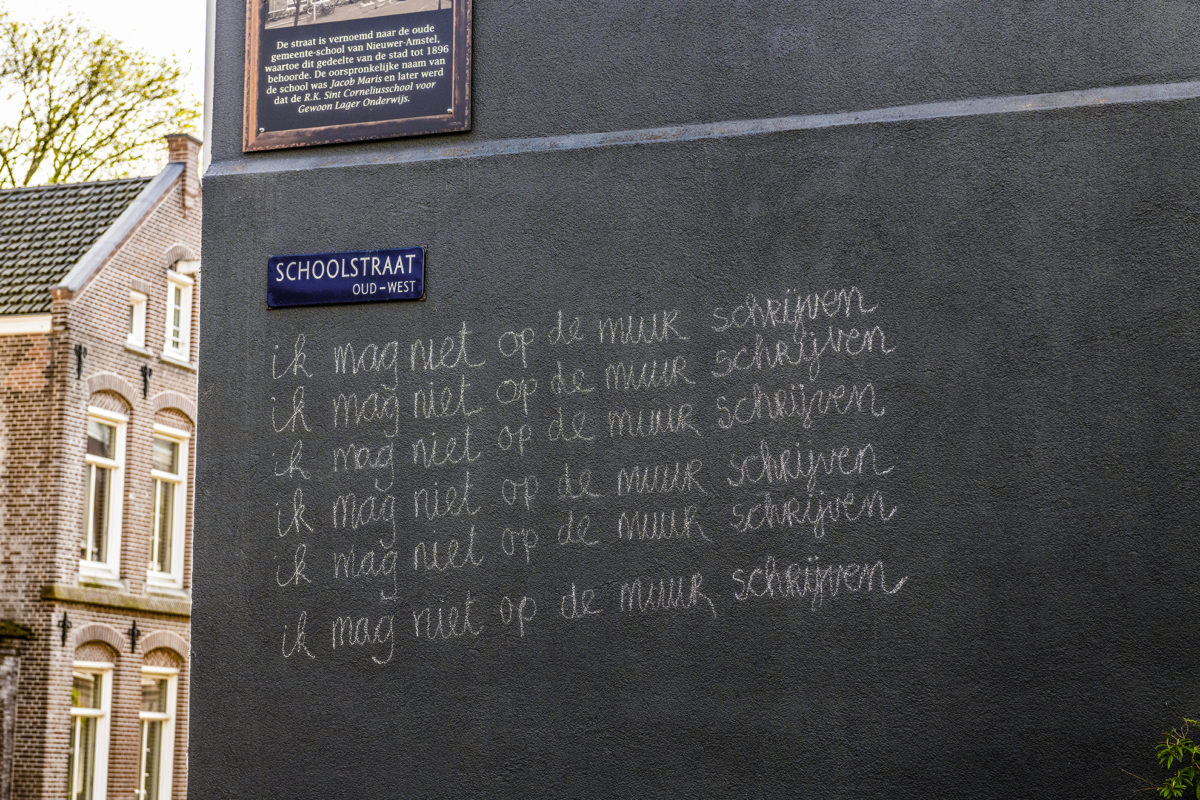 De straat is vernoemd naar de oude
gemeente-school van Nieuwer-Amstel,
waartoe dit gedeelte van de stad tot 1896
behoorde. De oorspronkelijke naam van
de school was Jacob Maris en later werd
dat de R.K. Sint Corneliusschool voor
Gewoon Lager Onderwijs.
SCHOOLSTRAAT
OUD-WEST
ik mag niet op de muur schrijven
ik mag niet op de muur schrijven
ik mag niet op de muur schrijven
ik mag niet op de muur schrijven
ik mag niet op de muur schrijven
ik mag niet op de muur schrijven